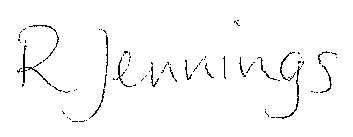 R Jennings